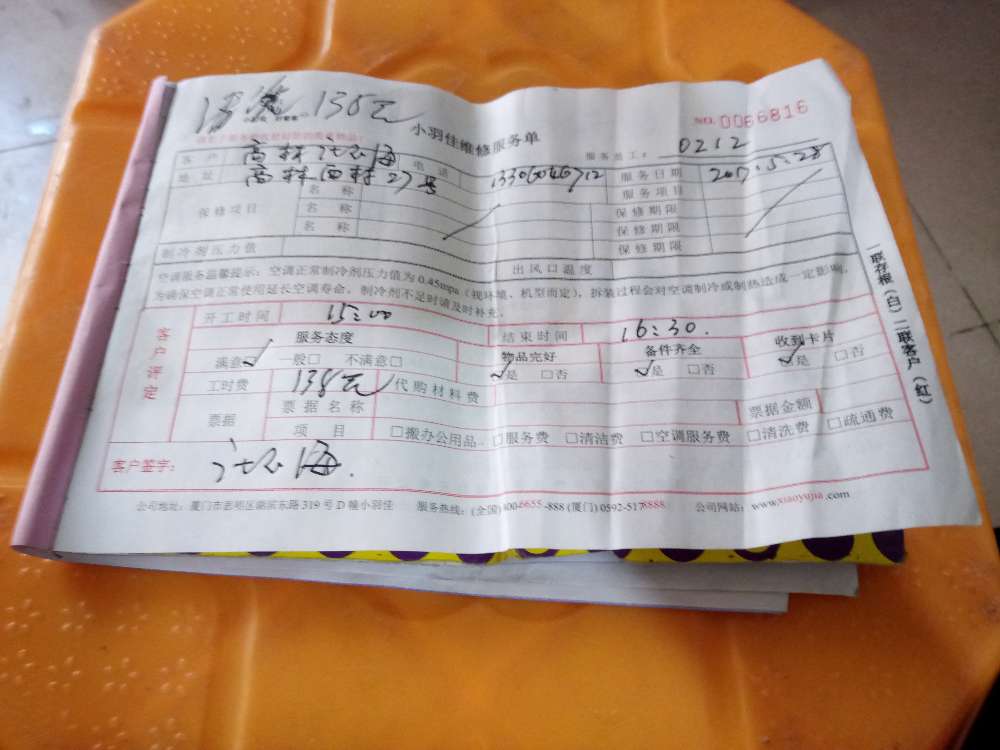 135元
小羽佳维修服务单
NO. 0066816
服务员工: 0212
客户 高林 电话 13306046712 服务日期 2017.5.28
地址 高林西村27号 服务项目
保修项目 名称 保修期限
名称 保修期限
名称 保修期限
制冷剂压力值 出风口温度
空调服务温馨提示:空调正常制冷剂压力值为0.45mpa(视环境、机型而定),拆装过程会对空调制冷或制热造成一定影响,
为确保空调正常使用延长空调寿命,制冷剂不足时请及时补充。
客户评定
开工时间 15:00 结束时间 16:30.
服务态度 物品完好 备件齐全 收到卡片
满意√ 一般□ 不满意□ √是 □否 √是 □否 √是 □否
工时费 135元 代购材料费
票据 票据名称 票据金额
项目 □搬办公用品 □服务费 □清洁费 □空调服务费 □清洗费 □疏通费
客户签字:
公司地址:厦门市思明区湖滨东路319号D幢小羽佳 服务热线:(全国)400-6655-888 (厦门)0592-5178888 公司网站:www.xiaoyujia.com
一联存根(白)二联客户(红)